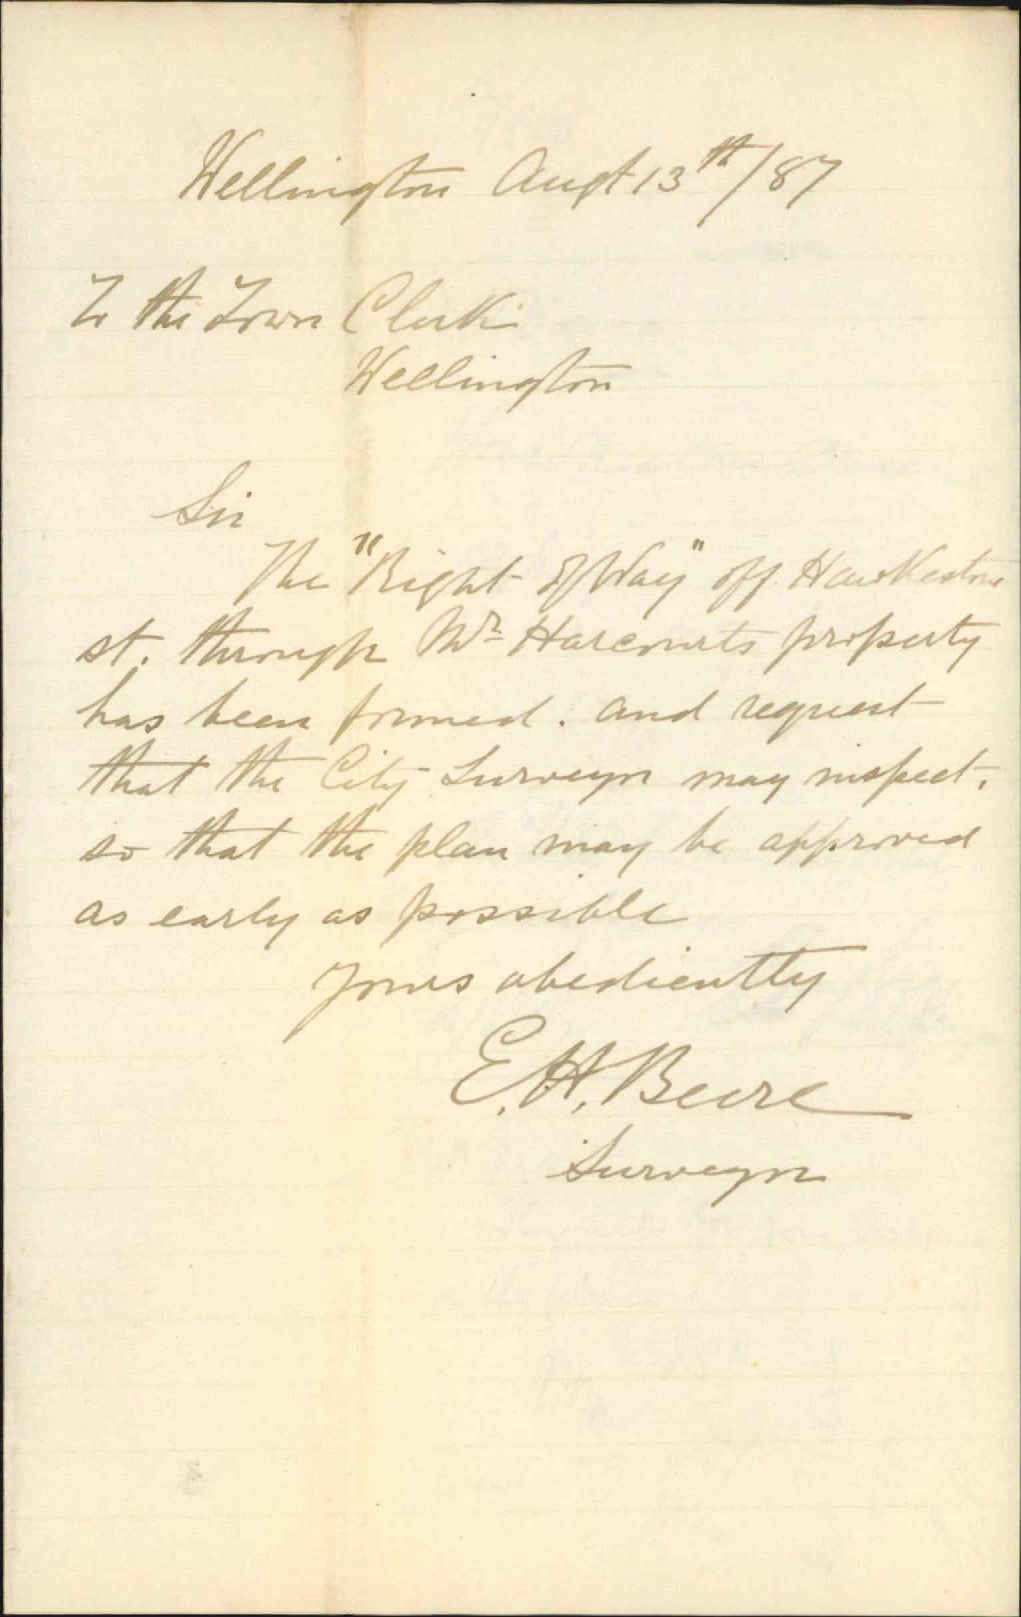 Wellington Augt 13th/87
To the Town Clerk
Wellington
Sir
The "Right of Way" off Hawkestone
st. through Mr Harcourts property
has been formed. and request
that the City Surveyor may inspect.
so that the plan may be approved
as early as possible
Yours obediently
E. H. Beere
Surveyor